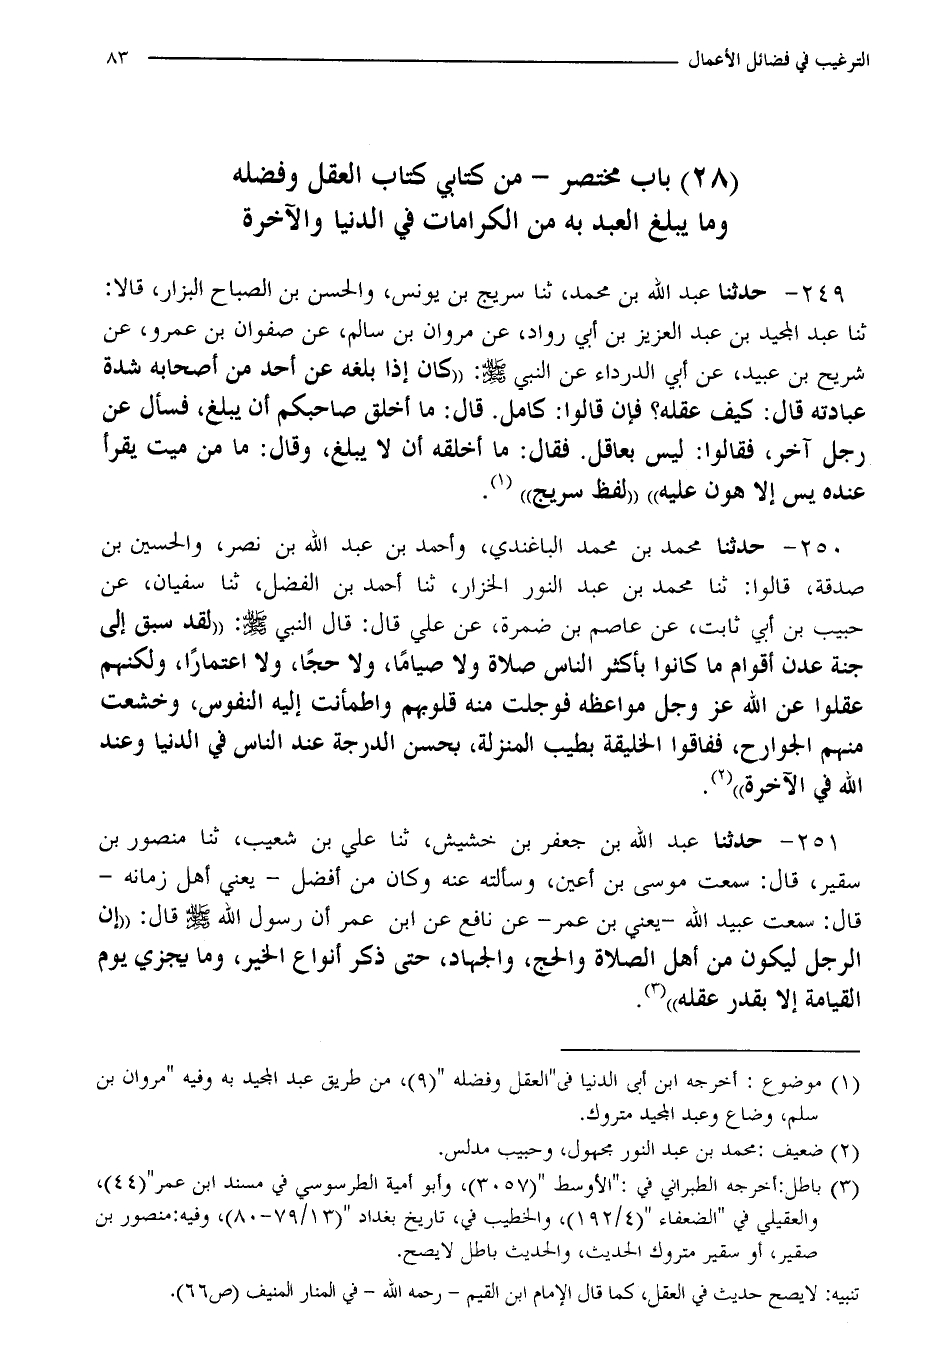 الترغيب في فضائل الأعمال ٨٣
(٢٨) باب مختصر – من كتابي كتاب العقل وفضله
وما يبلغ العبد به من الكرامات في الدنيا والآخرة
٢٤٩– حدثنا عبد الله بن محمد، ثنا سريج بن يونس، والحسن بن الصباح البزار، قالا:
ثنا عبد المجيد بن عبد العزيز بن أبي رواد، عن مروان بن سالم، عن صفوان بن عمرو، عن
شريح بن عبيد، عن أبي الدرداء عن النبي ﷺ: ((كان إذا بلغه عن أحد من أصحابه شدة
عبادته قال: كيف عقله؟ فإن قالوا: كامل. قال: ما أخلق صاحبكم أن يبلغ، فسأل عن
رجل آخر، فقالوا: ليس بعاقل. فقال: ما أخلقه أن لا يبلغ، وقال: ما من ميت يقرأ
عنده يس إلا هون عليه)) ((لفظ سريج)) (١).
٢٥٠– حدثنا محمد بن محمد الباغندي، وأحمد بن عبد الله بن نصر، والحسين بن
صدقة، قالوا: ثنا محمد بن عبد النور الخزار، ثنا أحمد بن الفضل، ثنا سفيان، عن
حبيب بن أبي ثابت، عن عاصم بن ضمرة، عن علي قال: قال النبي ﷺ: ((لقد سبق إلى
جنة عدن أقوام ما كانوا بأكثر الناس صلاة ولا صيامًا، ولا حجًا، ولا اعتمارًا، ولكنهم
عقلوا عن الله عز وجل مواعظه فوجلت منه قلوبهم واطمأنت إليه النفوس، وخشعت
منهم الجوارح، ففاقوا الخليقة بطيب المنزلة، بحسن الدرجة عند الناس في الدنيا وعند
الله في الآخرة))(٢).
٢٥١– حدثنا عبد الله بن جعفر بن خشيش، ثنا علي بن شعيب، ثنا منصور بن
سقير، قال: سمعت موسى بن أعين، وسألته عنه وكان من أفضل – يعني أهل زمانه –
قال: سمعت عبيد الله –يعني بن عمر– عن نافع عن ابن عمر أن رسول الله ﷺ قال: ((إن
الرجل ليكون من أهل الصلاة والحج، والجهاد، حتى ذكر أنواع الخير، وما يجزي يوم
القيامة إلا بقدر عقله))(٣).
(١) موضوع : أخرجه ابن أبى الدنيا فى"العقل وفضله "(٩)، من طريق عبد المجيد به وفيه "مروان بن
سلم، وضاع وعبد المجيد متروك.
(٢) ضعيف :محمد بن عبد النور مجهول، وحبيب مدلس.
(٣) باطل:أخرجه الطبراني في :"الأوسط "(٣٠٥٧)، وأبو أمية الطرسوسي في مسند ابن عمر"(٤٤)،
والعقيلي في "الضعفاء "(١٩٢/٤)، والخطيب في، تاريخ بغداد "(٧٩/١٣–٨٠)، وفيه:منصور بن
صقير، أو سقير متروك الحديث، والحديث باطل لايصح.
تنبيه: لايصح حديث في العقل، كما قال الإمام ابن القيم – رحمه الله – في المنار المنيف (ص٦٦).